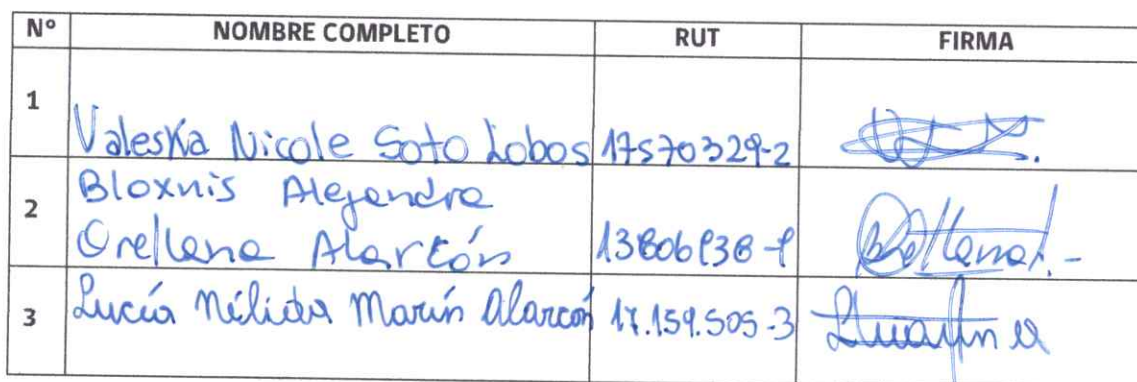 Nº NOMBRE COMPLETO RUT FIRMA
1 Valeska Nicole Soto Lobos 17570329-2
2 Bloxnis Alejandra
Orellana Alarcón
3 Lucía Nélida Marín Alarcón 17.159.505-3